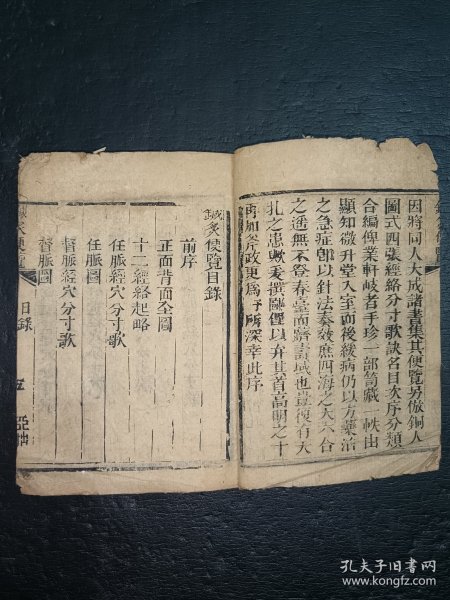 因將同人大成諸書集其便覽另倣銅人
圖式四張經絡分寸歌訣名目次序分類
合編俾業軒岐者手珍一部笥藏一帙由
顯知微升堂入室而後緩病仍以方藥治
之急症卽以針法奏發庶四海之大六合
之遙無不登春臺而躋壽域也豈復有夭
扎之患歟爰撰
俚以弁其首高明之士
再加
政更爲
所深幸此序
鍼灸便覽目錄
前序
正面背面全圖
十二經絡起略
任脈經穴分寸歌
任脈圖
督脈經穴分寸歌
督脈圖
灸便覽
目錄
孔夫子旧书网
www.kongfz.com